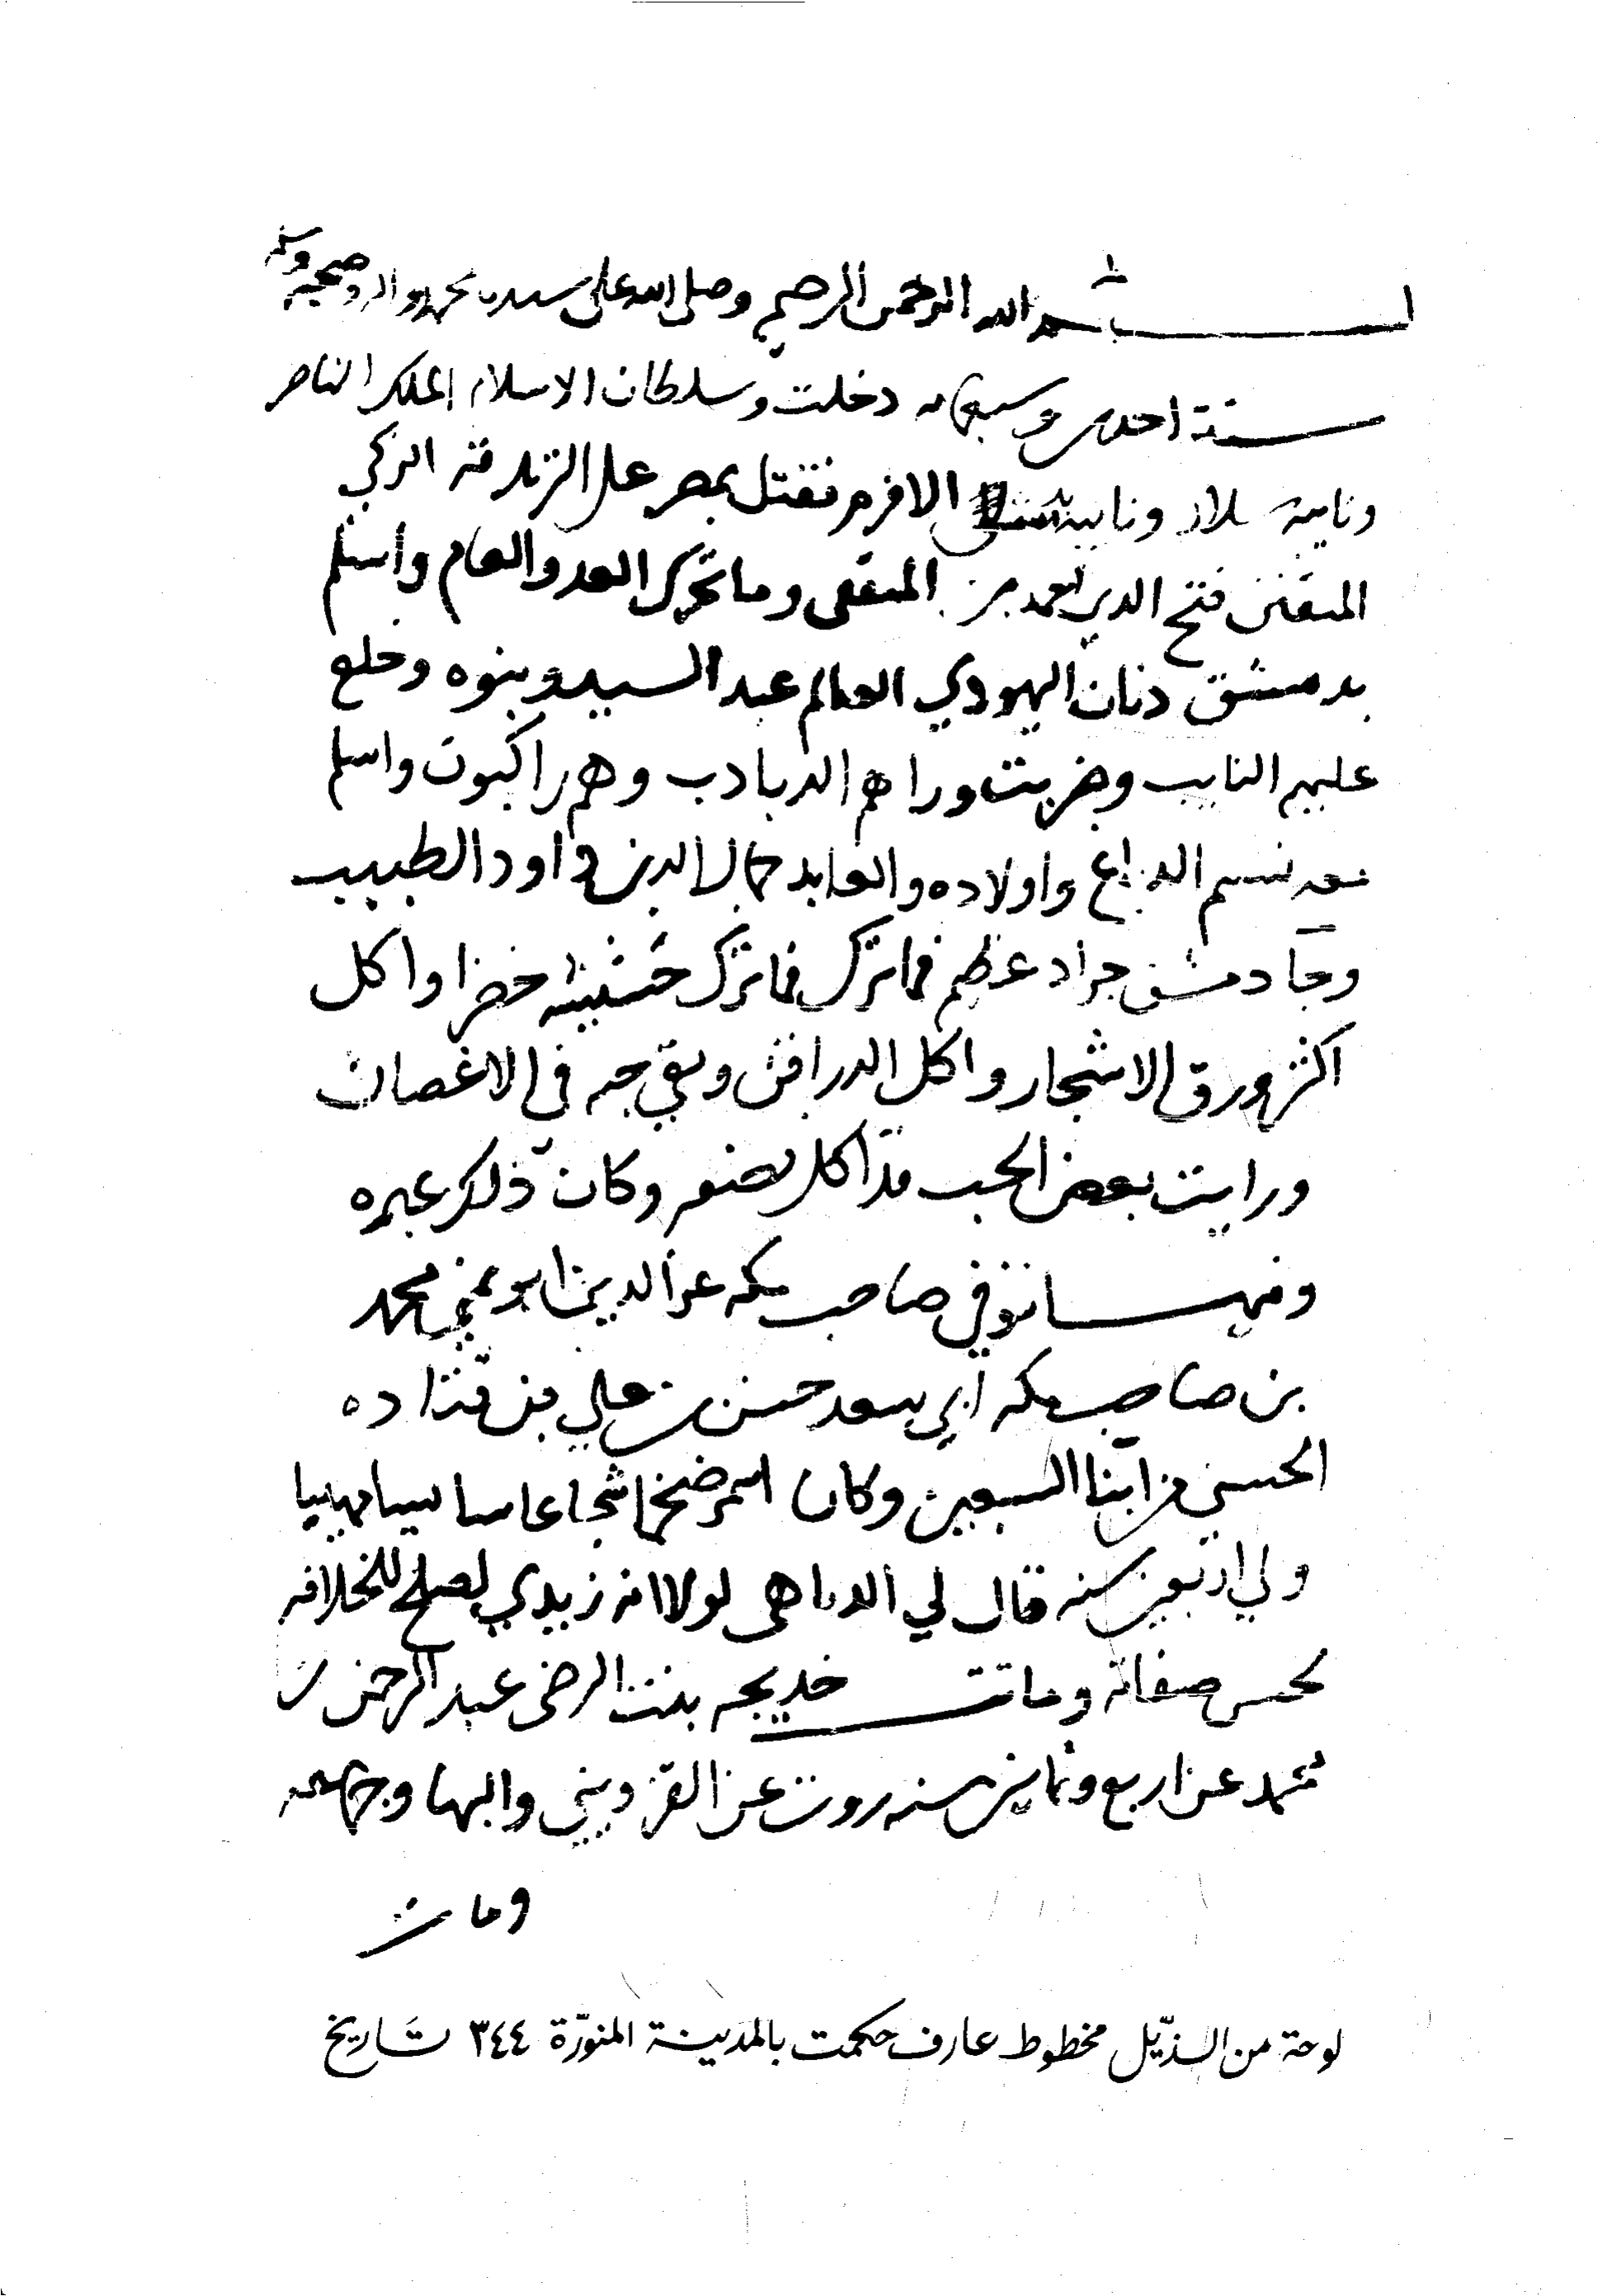 بسم الله الرحمن الرحيم وصلى الله على سيدنا محمد واله وصحبه وسلم
سنة احدى وسبعمايه دخلت وسلطان الاسلام الملك الناصر
ونايبه سلار ونايبه الافرم فقتل بمصر على الزندقه الزكي
المتفنن فتح الدين احمد بن البققي وما تحرك العدو العام واسلم
بدمشق ديان اليهودي العالم عبد السيد وبنوه وخلع
عليهم النايب وضربت وراهم الدبادب وهم راكبون واسلم
معه نسيم الدباغ واولاده والعابد جمال الدين داود الطبيب
وجا دمشق جراد عظيم فما ترك فما ترك حشيشه خضرا واكل
اكثر ورق الاشجار واكل الدراقن وبقي حبه في الاغصان
ورايت بعض الحب قد اكل نصفه وكان ذلك عبره
وفيها توفي صاحب مكه عز الدين ابو نمي محمد
بن صاحب مكه ابي سعد حسن بن علي بن قتاده
الحسني من ابنا السبعين وكان اسمر ضخما شجاعا سايسا مهيبا
ولي اربعين سنه قال لي الدباهي لولا انه زيدي لصلح للخلافه
لحسن صفاته وماتت خديجه بنت الرضى عبد الرحمن بن
محمد عن اربع وثمانين سنه روت عن القزويني والبها وجماعه
ومات
لوحة من الذّيل مخطوط عارف حكمت بالمدينة المنوّرة ٣٤٤ تاريخ